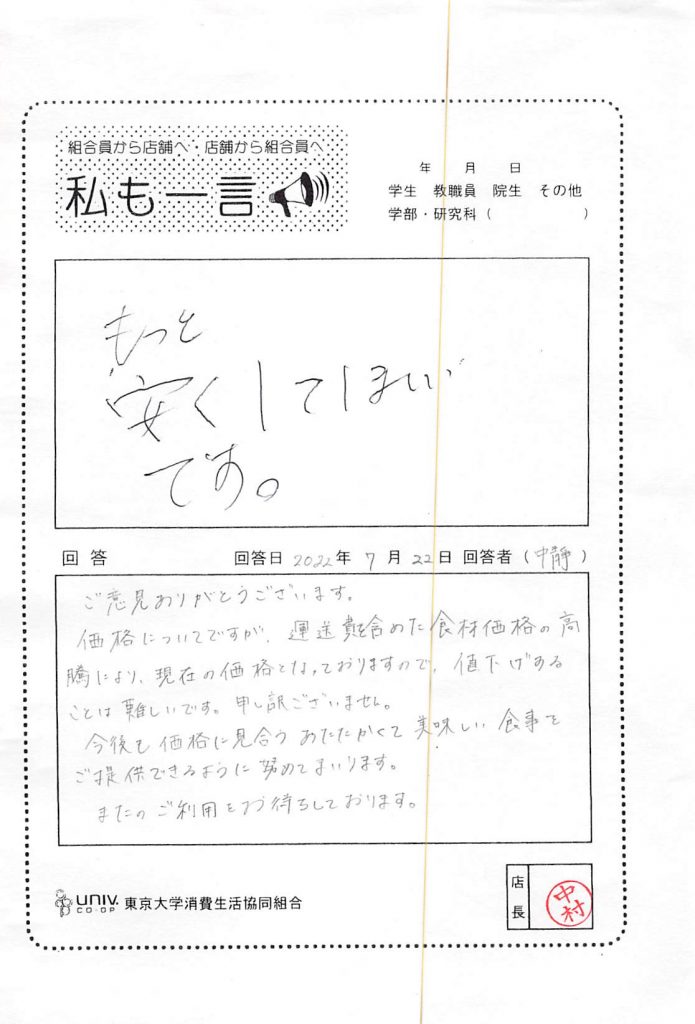 組合員から店舗へ・店舗から組合員へ
私も一言
年 月 日
学生 教職員 院生 その他
学部・研究科( )
もっと
安くしてほしい
です。
回答 回答日 2022年 7月 22日 回答者(中静)
ご意見ありがとうございます。
価格についてですが、運送費を含めた食材価格の高
騰により、現在の価格となっておりますので、値下げする
ことは難しいです。申し訳ございません。
今後も価格に見合うあたたかくて美味しい食事を
ご提供できるように努めてまいります。
またのご利用をお待ちしております。
UNIV. CO-OP 東京大学消費生活協同組合
店長 中村